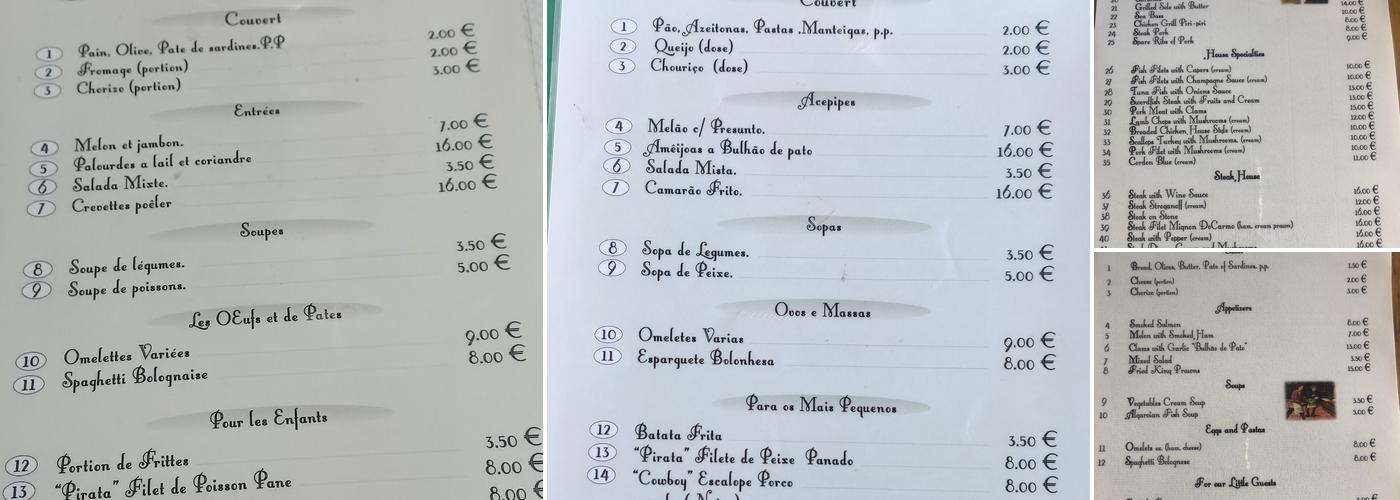 Couvert
1 Pain, Olive, Pate de sardines.P.P 2.00 €
2 Fromage (portion) 2.00 €
3 Chorizo (portion) 3.00 €
Entrées
4 Melon et jambon. 7.00 €
5 Palourdes a lail et coriandre 16.00 €
6 Salada Mixte. 3.50 €
7 Crevettes poêler 16.00 €
Soupes
8 Soupe de légumes. 3.50 €
9 Soupe de poissons. 5.00 €
Les OEufs et de Pates
10 Omelettes Variées 9.00 €
11 Spaghetti Bolognaise 8.00 €
Pour les Enfants
12 Portion de Frittes 3.50 €
13 "Pirata" Filet de Poisson Pane 8.00 €
8.00 €
Couvert
1 Pão, Azeitonas, Pastas ,Manteigas, p.p. 2.00 €
2 Queijo (dose) 2.00 €
3 Chouriço (dose) 3.00 €
Acepipes
4 Melão c/ Presunto. 7.00 €
5 Amêijoas a Bulhão de pato 16.00 €
6 Salada Mista. 3.50 €
7 Camarão Frito. 16.00 €
Sopas
8 Sopa de Legumes. 3.50 €
9 Sopa de Peixe. 5.00 €
Ovos e Massas
10 Omeletes Varias 9.00 €
11 Esparquete Bolonhesa 8.00 €
Para os Mais Pequenos
12 Batata Frita 3.50 €
13 "Pirata" Filete de Peixe Panado 8.00 €
14 "Cowboy" Escalope Porco 8.00 €
21 Grilled Sole with Butter 14.00 €
22 Sea Bass 10.00 €
23 Chicken Grill Piri-piri 8.00 €
24 Steak Pork 8.00 €
25 Spare Ribs of Pork 9.00 €
House Specialties
26 Fish Filets with Capers (cream) 10.00 €
27 Fish Filets with Champagne Sauce (cream) 10.00 €
28 Tuna Fish with Onions Sauce 13.00 €
29 Swordfish Steak with Fruits and Cream 13.00 €
30 Pork Meat with Clams 13.00 €
31 Lamb Chops with Mushrooms (cream) 12.00 €
32 Breaded Chicken, House Style (cream) 10.00 €
33 Scallops Turkey with Mushrooms. (cream) 10.00 €
34 Pork Filet with Mushrooms (cream) 10.00 €
35 Cordon Blue (cream) 11.00 €
Steak House
36 Steak with Wine Sauce 16.00 €
37 Steak Stroganoff (cream) 12.00 €
38 Steak on Stone 16.00 €
39 Steak Filet Mignon DoCarmo (ham, cream prawn) 16.00 €
40 Steak with Pepper (cream) 16.00 €
16.00 €
1 Bread, Olives, Butter, Pate of Sardines. p.p. 1.50 €
2 Cheese (portion) 2.00 €
3 Chorizo (portion) 3.00 €
Appetizers
4 Smoked Salmon 8.00 €
5 Melon with Smoked Ham 7.00 €
6 Clams with Garlic "Bulhão de Pato" 13.00 €
7 Mixed Salad 3.50 €
8 Fried King Prawns 15.00 €
Soups
9 Vegetables Cream Soup 3.50 €
10 Algarvian Fish Soup 5.00 €
Eggs and Pastas
11 Omelets ex. (ham, cheese) 8.00 €
12 Spaghetti Bolognese 8.00 €
For our Little Guests